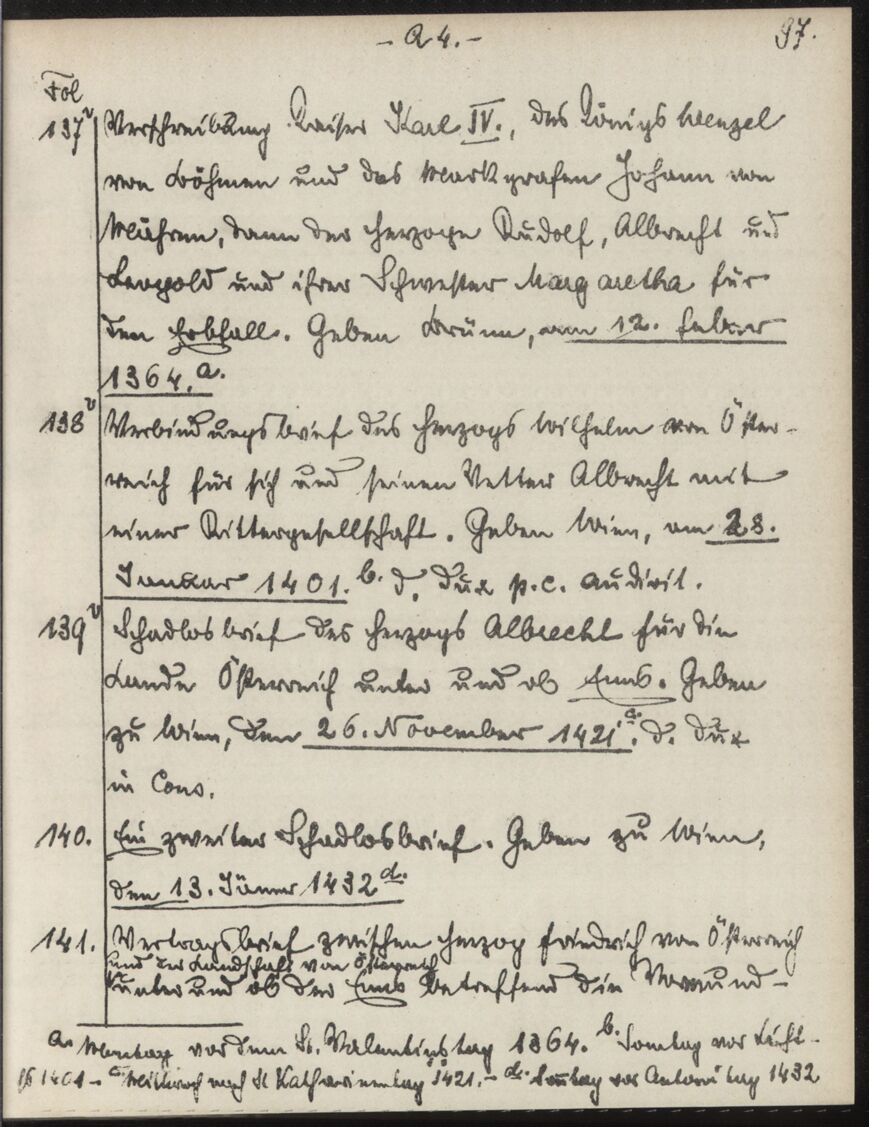 - a 4. -
97.
Fol
137v Verschreibung Kaiser Karl IV., des Königs Wenzel
von Böhmen und des Markgrafen Johann von
Mähren, dann der Herzoge Rudolf, Albrecht und
Leopold und ihrer Schwester Margaretha für
den Erbfall. Geben Brünn, am 12. Feber
1364.a.
138v Verbindungsbrief des Herzogs Wilhelm von Öster-
reich für sich und seinen Vetter Albrecht mit
einer Rittergesellschaft. Geben Wien, am 28.
Januar 1401.b. d. dux p.c. audivit.
139v Schadlosbrief des Herzogs Albrecht für die
Lande Österreich unter und ob Enns. Geben
zu Wien, den 26. November 1421c. d. dux
in Cons.
140. Ein zweiter Schadlosbrief. Geben zu Wien,
den 13. Jänner 1432d.
141. Vertragsbrief zwischen Herzog Friedrich von Österreich
und der Landschaft von Österreich
unter und ob der Enns betreffend die Vormund-
a. Montag vor dem St. Valentinstag 1364. b. Sonntag vor Licht-
1401 - c. Mittwoch nach St Katharinentag 1421. - d. Sonntag vor Antoni tag 1432